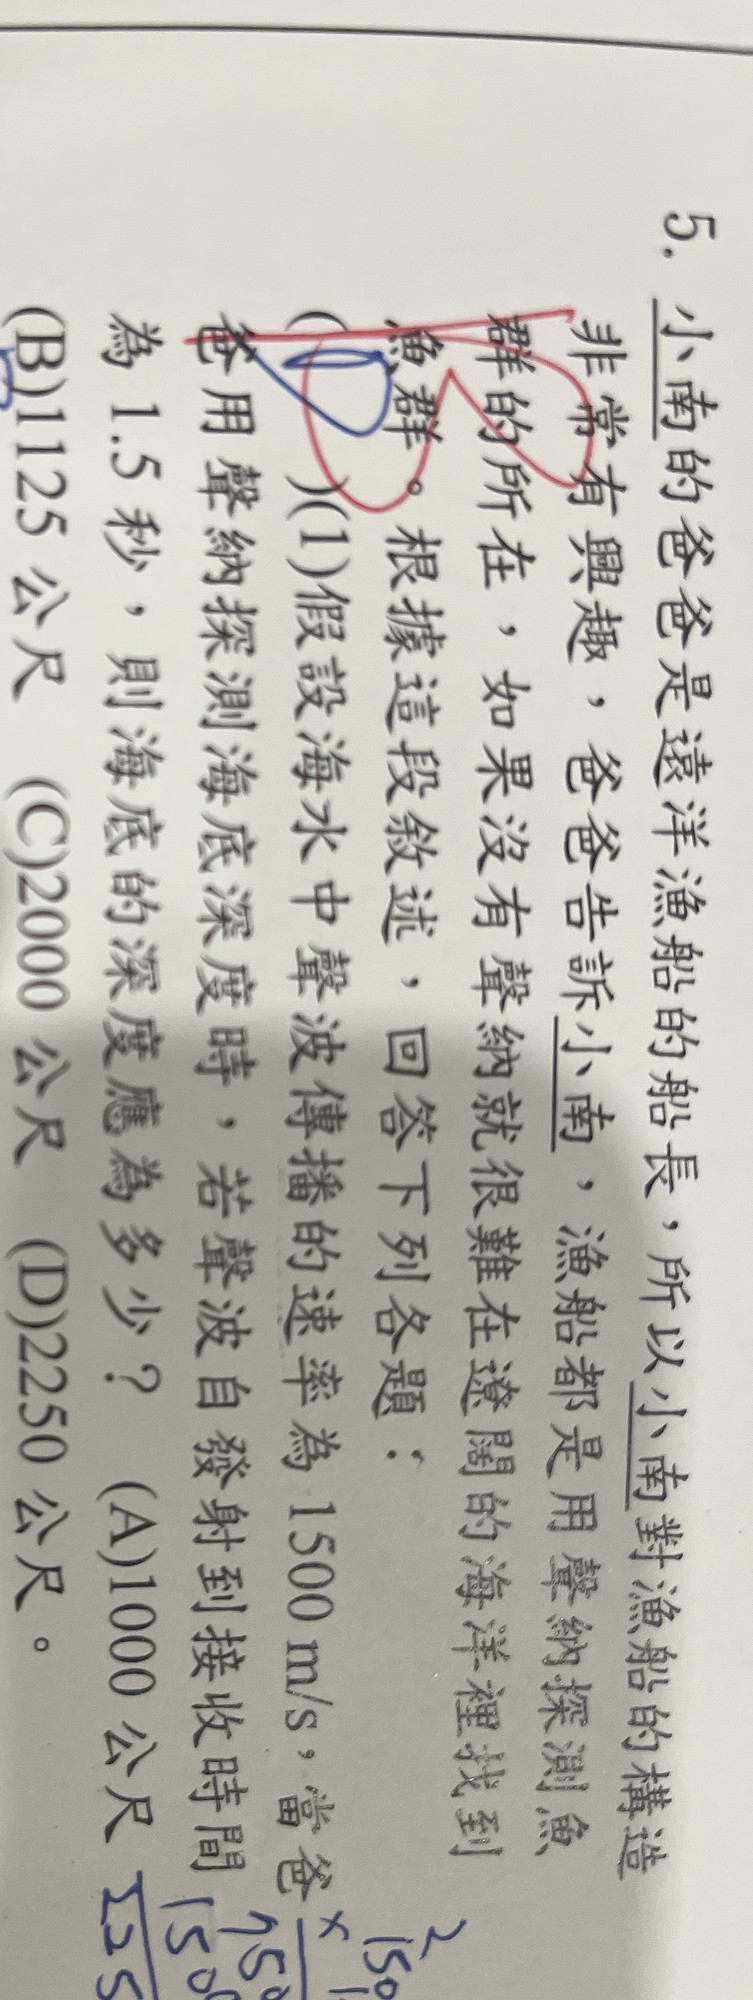 5. 小南的爸爸是遠洋漁船的船長，所以小南對漁船的構造
非常有興趣，爸爸告訴小南，漁船都是用聲納探測魚
群的所在，如果沒有聲納就很難在遼闊的海洋裡找到
魚群。根據這段敘述，回答下列各題：
( )(1)假設海水中聲波傳播的速率為 1500 m/s，當爸
爸用聲納探測海底深度時，若聲波自發射到接收時間
為 1.5 秒，則海底的深度應為多少？ (A)1000 公尺
(B)1125 公尺 (C)2000 公尺 (D)2250 公尺。